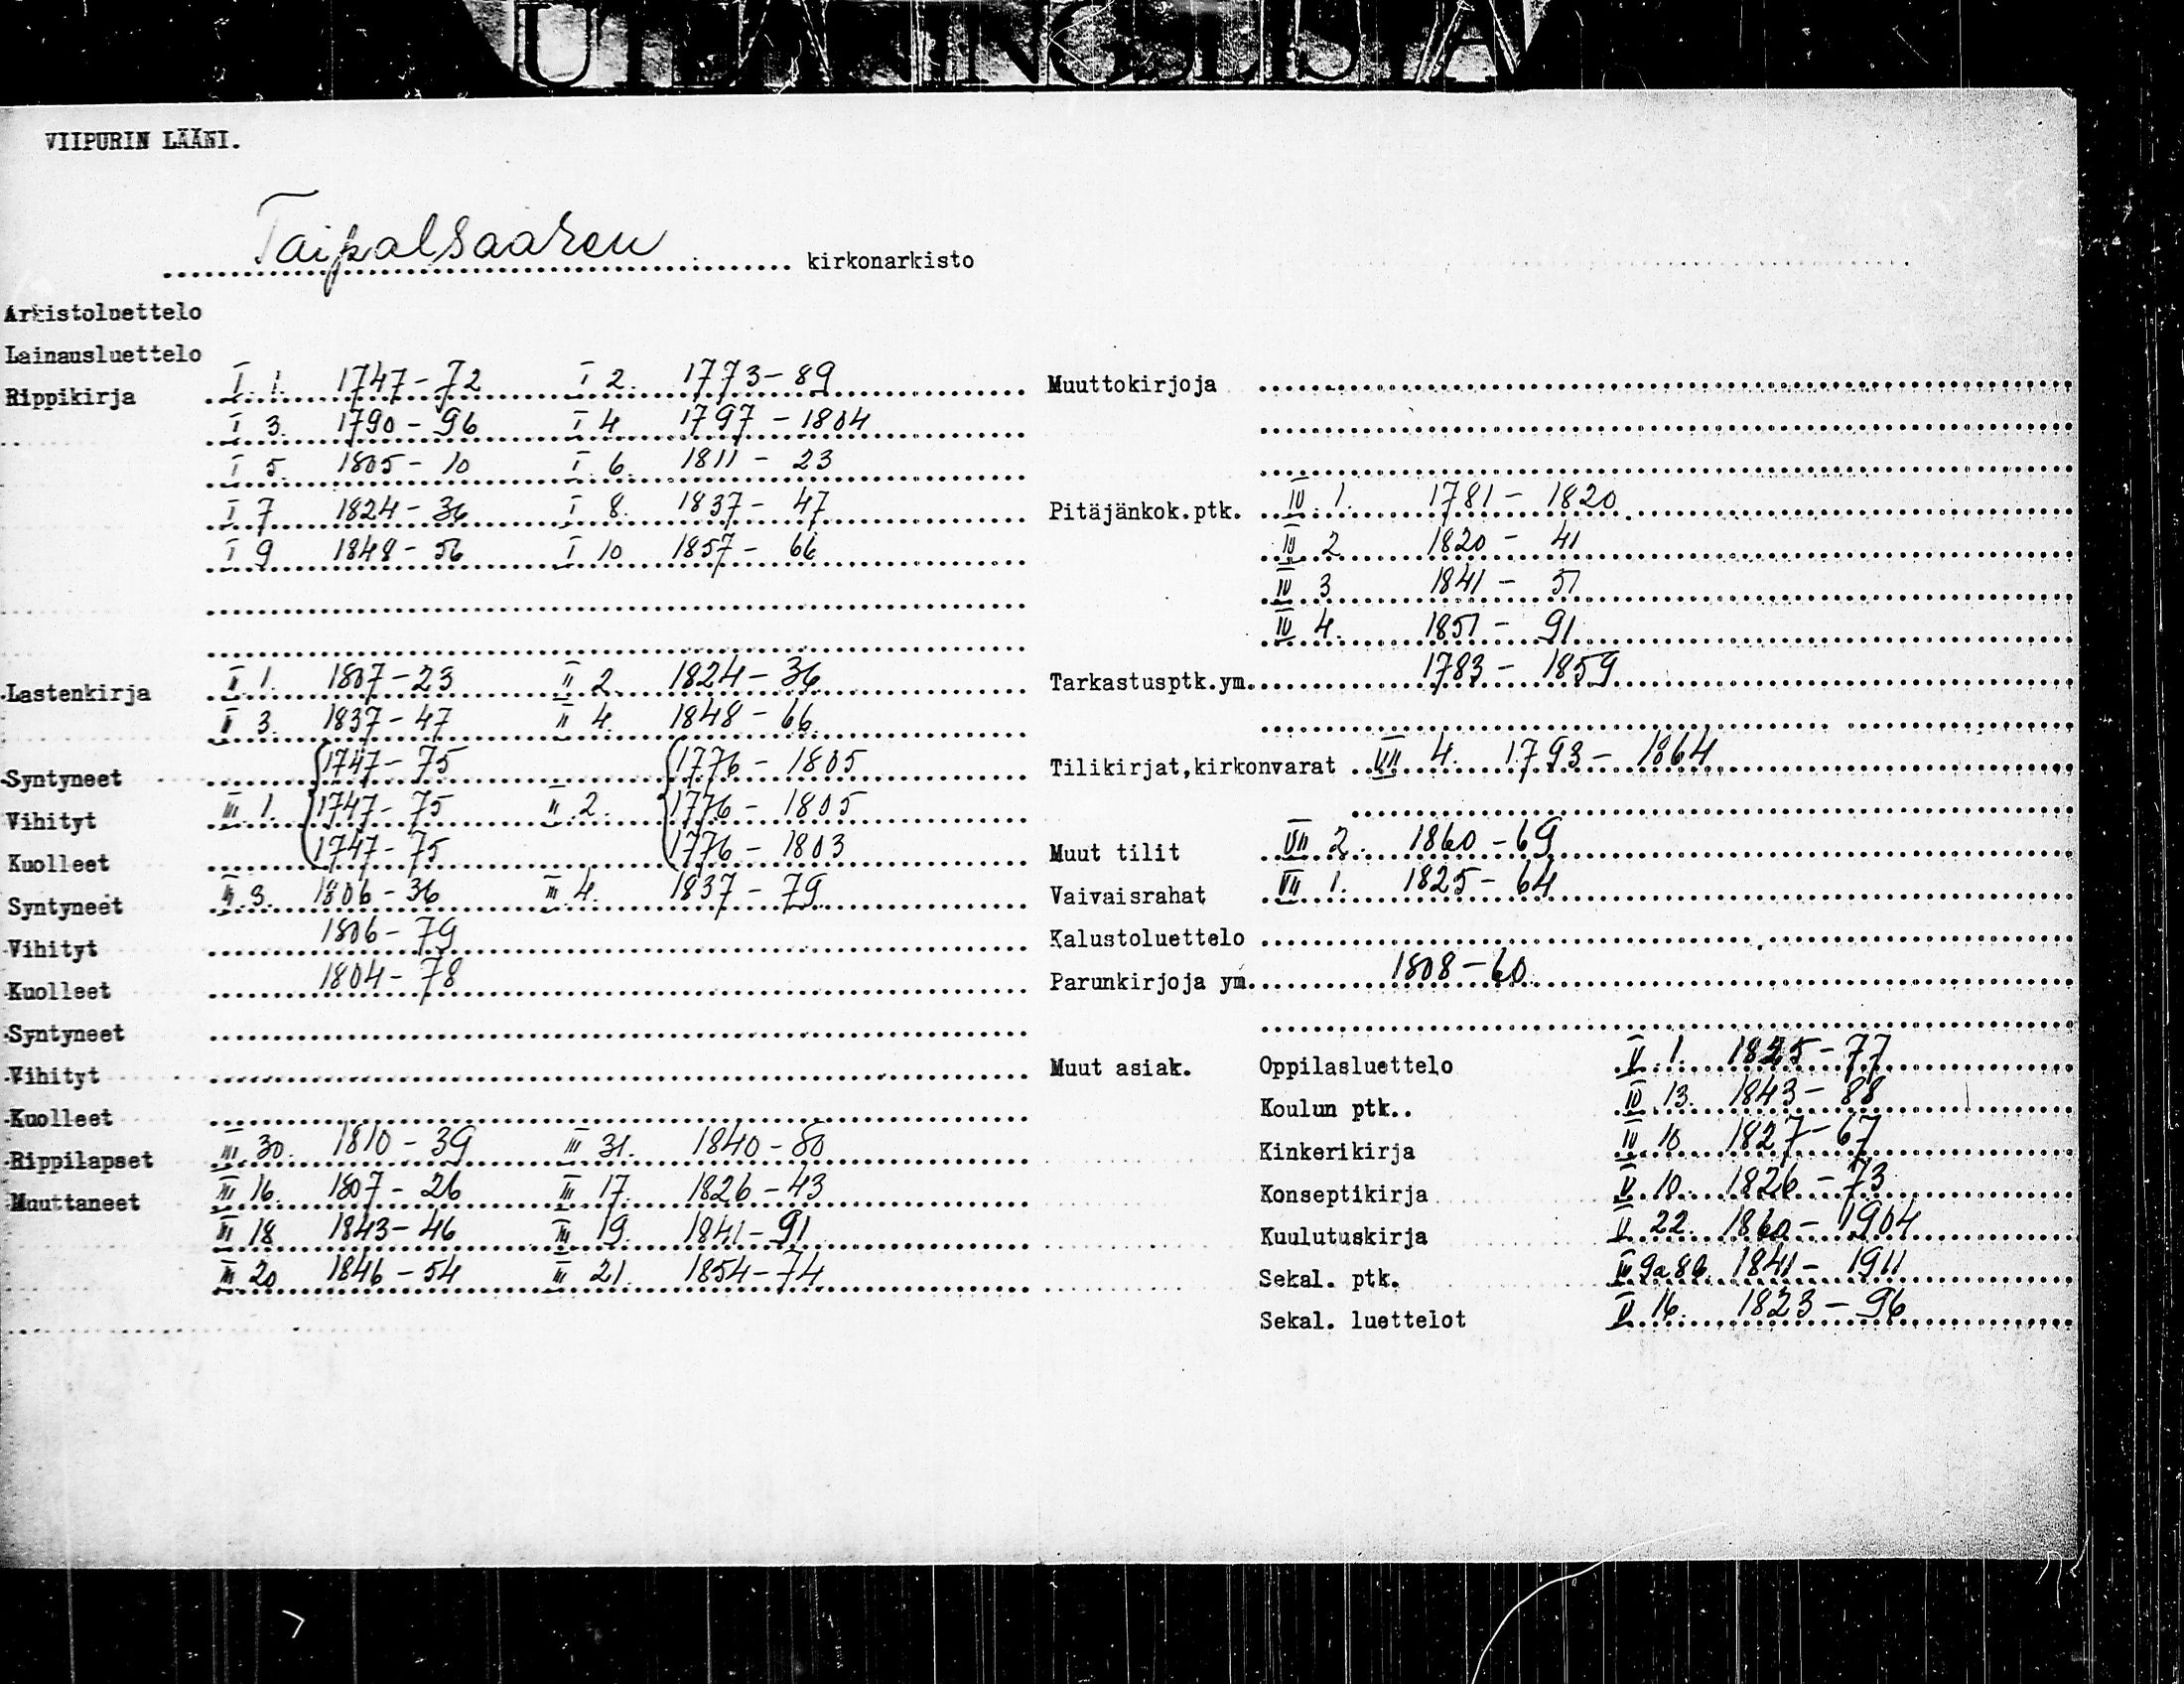 UTLÅNINGSLISTA
VIIPURIN LÄÄNI.
Taipalsaaren kirkonarkisto
Arkistoluettelo
Lainausluettelo
Rippikirja I 1. 1747-72 I 2. 1773-89
I 3. 1790-96 I 4 1797-1804
I 5. 1805-10 I 6. 1811-23
I 7 1824-36 I 8. 1837-47
I 9 1848-56 I 10 1857-66
Lastenkirja II 1. 1807-23 II 2. 1824-36
II 3. 1837-47 II 4. 1848-66
Syntyneet 1747-75 1776-1805
Vihityt III 1. 1747-75 II 2. 1776-1805
Kuolleet 1747-75 1776-1803
Syntyneet III 3. 1806-36 III 4. 1837-79
Vihityt 1806-79
Kuolleet 1804-78
Syntyneet
Vihityt
Kuolleet
Rippilapset III 30. 1810-39 III 31. 1840-80
Muuttaneet III 16. 1807-26 III 17. 1826-43
III 18 1843-46 III 19. 1841-91
III 20 1846-54 III 21. 1854-74
Muuttokirjoja
Pitäjänkok.ptk. IV 1. 1781-1820
IV 2 1820-41
IV 3 1841-51
IV 4. 1851-91
Tarkastusptk.ym. 1783-1859
Tilikirjat,kirkonvarat VII 4. 1793-1864
Muut tilit VII 2. 1860-69
Vaivaisrahat VII 1. 1825-64
Kalustoluettelo
Parunkirjoja ym. 1808-60
Muut asiak. Oppilasluettelo V 1. 1825-77
Koulun ptk.. IV 13. 1843-88
Kinkerikirja IV 10 1827-67
Konseptikirja V 10. 1826-73
Kuulutuskirja V 22. 1860-1904
Sekal. ptk. IV 9a8b. 1841-1911
Sekal. luettelot V 16. 1823-96